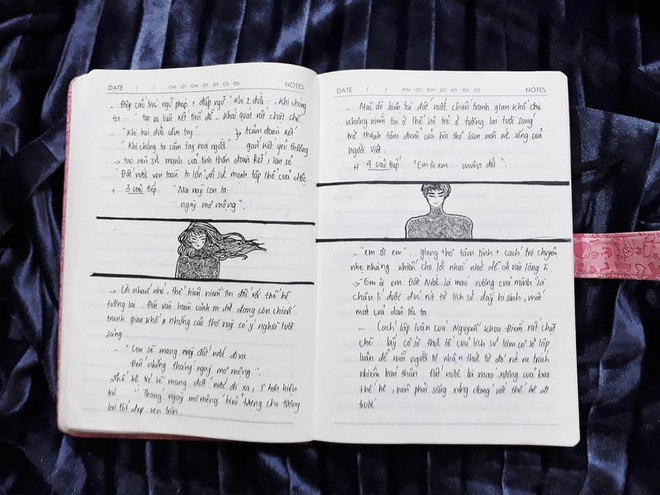 DATE / / NOTES
- Điệp cấu trúc ngữ pháp + điệp ngữ "Khi 2 đứa", "Khi chúng
ta" tạo ra liên kết khái quát rất chặt chẽ
"Khi hai đứa cầm tay"
"Khi chúng ta cầm tay mọi người"
đoàn kết
gắn kết yêu thương
→ tạo nên sức mạnh của tinh thần đoàn kết, san sẻ
Đất nước vẹn toàn to lớn với sức mạnh tập thể của
+ 3 câu tiếp. "Mai này con ta
ngày mơ mộng".
→ Lời nhắn nhủ, thể hiện niềm tin đối với thế hệ
tương lai. Đất vào hoàn cảnh ra đời đang còn chiến
tranh gian khổ, nhưng câu thơ này có ý nghĩa
sáng.
- "Con sẽ mang này đất nước đi xa
Đến những tháng ngày mơ mộng".
→ Thế hệ trẻ sẽ mang đất nước đi xa,
lai. "Tháng ngày mơ mộng" biểu tượng cho tương
lai tốt đẹp, vẹn tròn.
DATE / / NOTES
- Mặc dù hiện tại đất nước chiến tranh gian khổ cho
nhưng niềm tin ở thế hệ trẻ ở tương lai tươi sáng
trở thành tâm điểm của bài thơ làm nên lẽ sống của
người Việt.
+ 4 câu tiếp. "Em ơi em muôn đời".
- "em ơi em", giọng thơ tâm tình + cách trò chuyện
nhẹ nhàng khiến cho lời nhắc nhở dễ đi vào lòng
- Em ơi em Đất Nước là máu xương của mình
chân lí được đúc rút từ lịch sử đầy hi sinh, mất
mát của dân tộc ta
- Cách lập luận của Nguyễn Khoa Điềm rất chặt
chẽ lấy cơ sở thực tế của lịch sử làm cơ sở lập
luận để mỗi người tự nhận thức từ đó rút ra trách
nhiệm bản thân. Đất nước là máu xương của bao
thế hệ, nên phải sống xứng đáng với thế hệ đi
trước